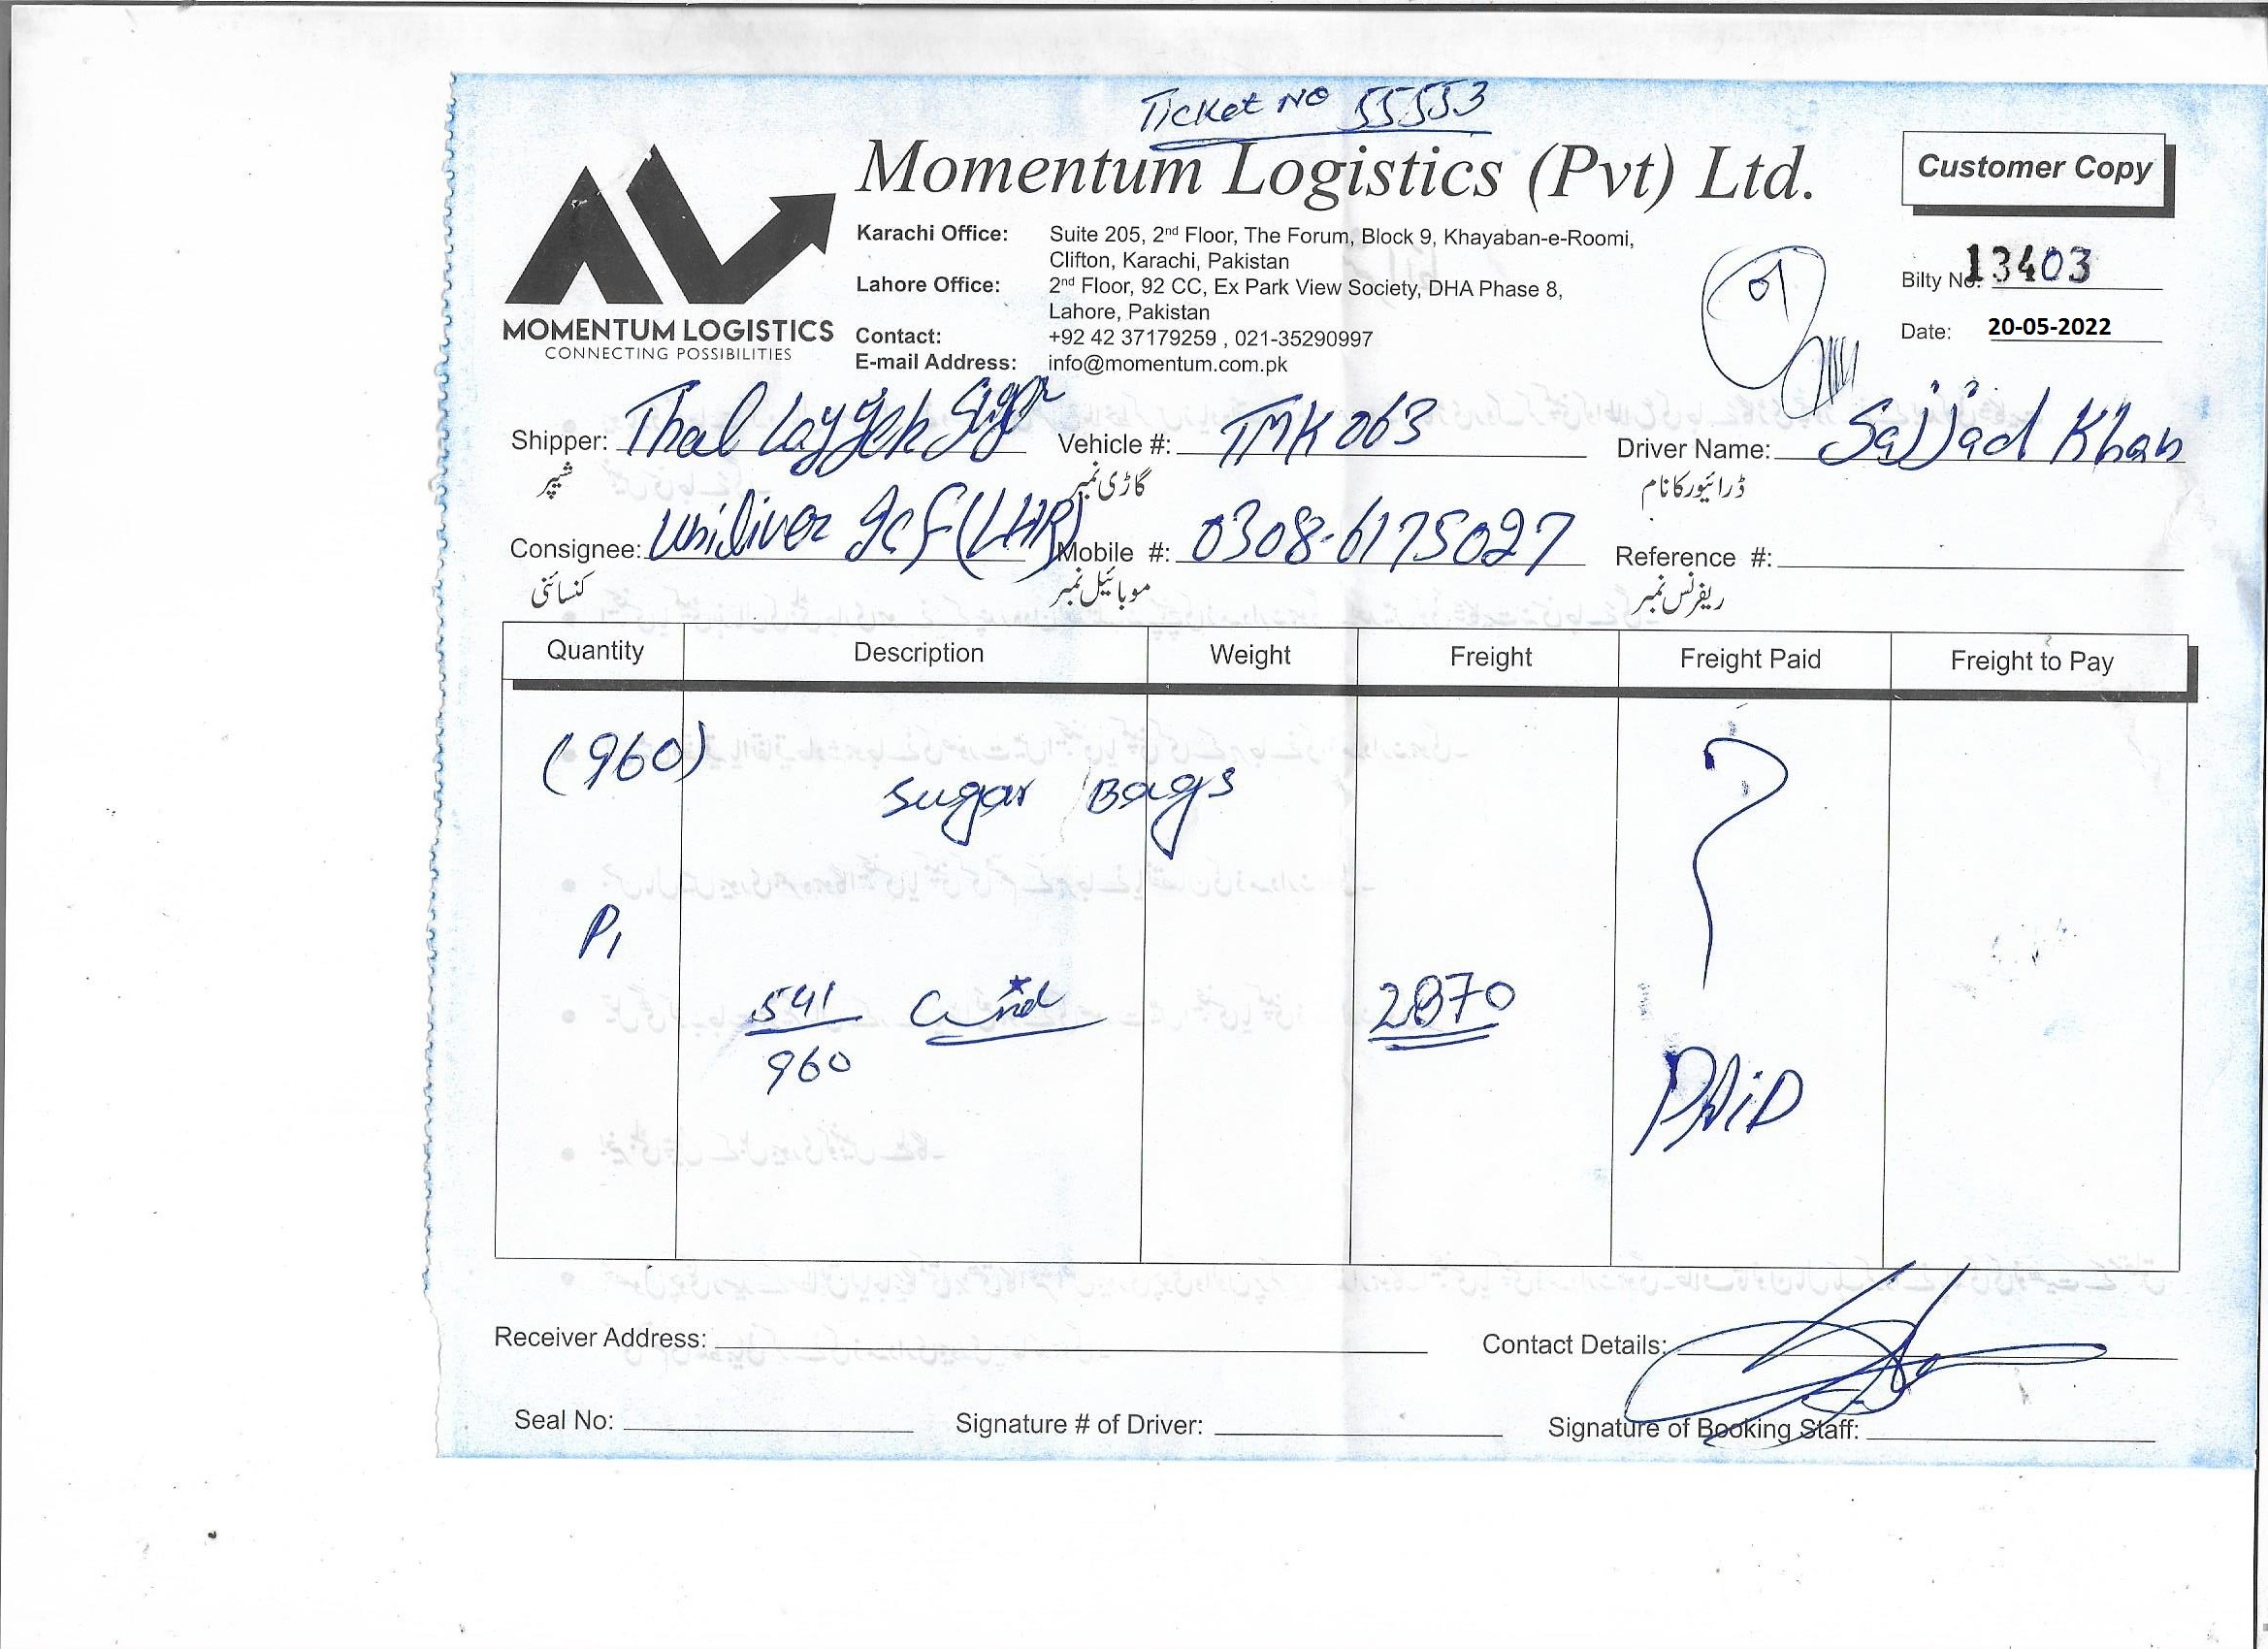 Ticket No 55553
Momentum Logistics (Pvt) Ltd.
Customer Copy
MOMENTUM LOGISTICS
CONNECTING POSSIBILITIES
Karachi Office: Suite 205, 2nd Floor, The Forum, Block 9, Khayaban-e-Roomi,
Clifton, Karachi, Pakistan
Lahore Office: 2nd Floor, 92 CC, Ex Park View Society, DHA Phase 8,
Lahore, Pakistan
Contact: +92 42 37179259 , 021-35290997
E-mail Address: info@momentum.com.pk
Bilty No. 13403
Date: 20-05-2022
Shipper: Thal Layyah Vehicle #: TMK 063 Driver Name: Sajjad Khan
شیپر گاڑی نمبر ڈرائیور کا نام
Consignee: Uniliver gcf (LHR) Mobile #: 0308-6175027 Reference #:
کنسائنی موبائیل نمبر ریفرنس نمبر
Quantity Description Weight Freight Freight Paid Freight to Pay
(960) Sugar Bags
P1
541 2870
960
PAiD
Receiver Address: Contact Details:
Seal No: Signature # of Driver: Signature of Booking Staff: